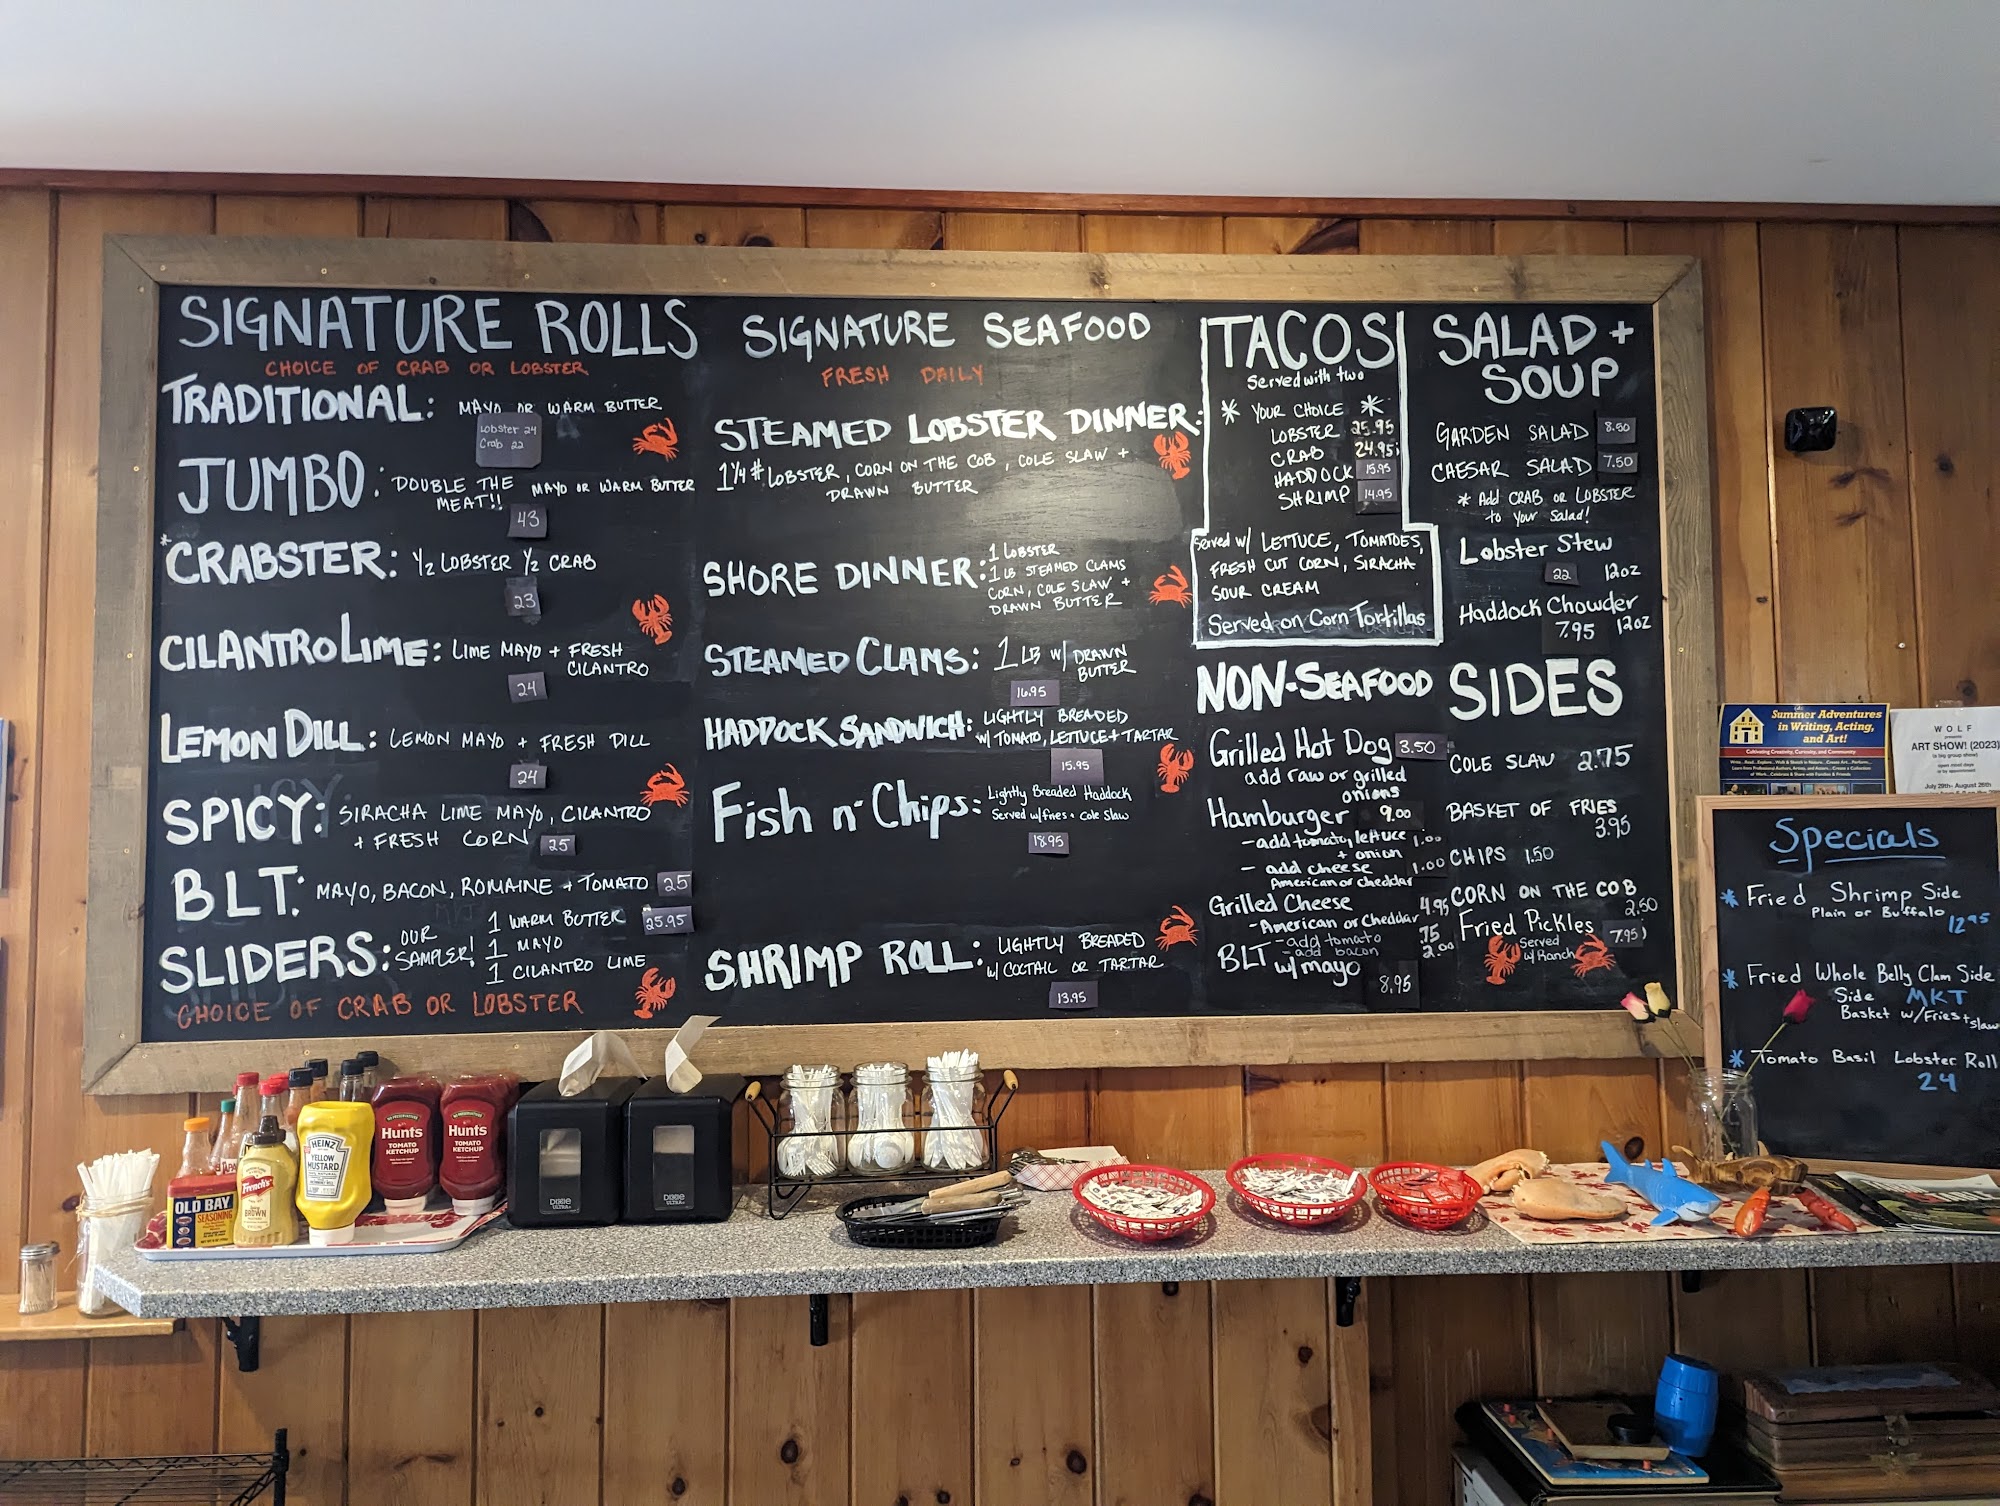 SIGNATURE ROLLS
CHOICE OF CRAB OR LOBSTER
TRADITIONAL: MAYO OR WARM BUTTER
Lobster 24
Crab 22
JUMBO: DOUBLE THE MEAT!! MAYO OR WARM BUTTER
43
*CRABSTER: 1/2 LOBSTER 1/2 CRAB
23
CILANTRO LIME: LIME MAYO + FRESH
CILANTRO
24
LEMON DILL: LEMON MAYO + FRESH DILL
24
SPICY: SIRACHA LIME MAYO, CILANTRO
+ FRESH CORN 25
BLT: MAYO, BACON, ROMAINE + TOMATO 25
SLIDERS: OUR SAMPLER! 1 WARM BUTTER 25.95
1 MAYO
1 CILANTRO LIME
CHOICE OF CRAB OR LOBSTER
SIGNATURE SEAFOOD
FRESH DAILY
STEAMED LOBSTER DINNER:
1 1/4 # LOBSTER, CORN ON THE COB, COLE SLAW +
DRAWN BUTTER
SHORE DINNER: 1 LOBSTER
1 LB STEAMED CLAMS
CORN, COLE SLAW +
DRAWN BUTTER
STEAMED CLAMS: 1 LB W/ DRAWN
BUTTER
16.95
HADDOCK SANDWICH: LIGHTLY BREADED
W/ TOMATO, LETTUCE + TARTAR
15.95
Fish n' Chips: Lightly Breaded Haddock
Served w/fries + Cole Slaw
18.95
SHRIMP ROLL: LIGHTLY BREADED
W/ COCTAIL OR TARTAR
13.95
TACOS
Served with two
* YOUR CHOICE *
LOBSTER 25.95
CRAB 24.95
HADDOCK 15.95
SHRIMP 14.95
Served w/ LETTUCE, TOMATOES,
FRESH CUT CORN, SIRACHA
SOUR CREAM
Served on Corn Tortillas
NON-SEAFOOD
Grilled Hot Dog 3.50
add raw or grilled
onions
Hamburger 9.00
- add tomato, lettuce 1.00
+ onion
- add cheese 1.00
American or cheddar
Grilled Cheese 4.95
- American or Cheddar
- add tomato .75
- add bacon 2.00
BLT w/ mayo
8.95
SALAD +
SOUP
GARDEN SALAD 8.50
CAESAR SALAD 7.50
* Add CRAB OR LOBSTER
to your Salad!
Lobster Stew
22 12oz
Haddock Chowder
7.95 12oz
SIDES
COLE SLAW 2.75
BASKET OF FRIES
3.95
CHIPS 1.50
CORN ON THE COB
2.50
Fried Pickles 7.95
Served
w/ Ranch
Summer Adventures
in Writing, Acting,
and Art!
Cultivating Creativity, Curiosity, and Community
WOLF
presents
ART SHOW! (2023)
July 29th - August 26th
Specials
* Fried Shrimp Side
Plain or Buffalo 12.95
* Fried Whole Belly Clam Side
Side MKT
Basket w/Fries + slaw
* Tomato Basil Lobster Roll
24
OLD BAY
SEASONING
French's
BROWN
HEINZ
YELLOW
MUSTARD
Hunts
TOMATO
KETCHUP
Hunts
TOMATO
KETCHUP
DIXIE
ULTRA
DIXIE
ULTRA